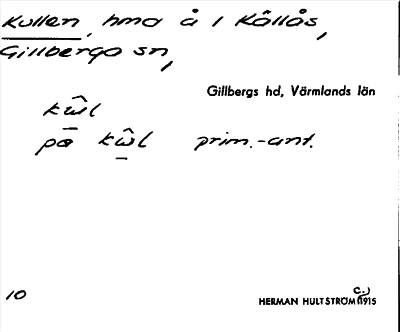 Kullen, hmd å 1 Kållås,
Gillberga sn,
Gillbergs hd, Värmlands län
kω̂l
på kω̂l prim.-ant.
10
HERMAN HULTSTRÖM (c.) 1915